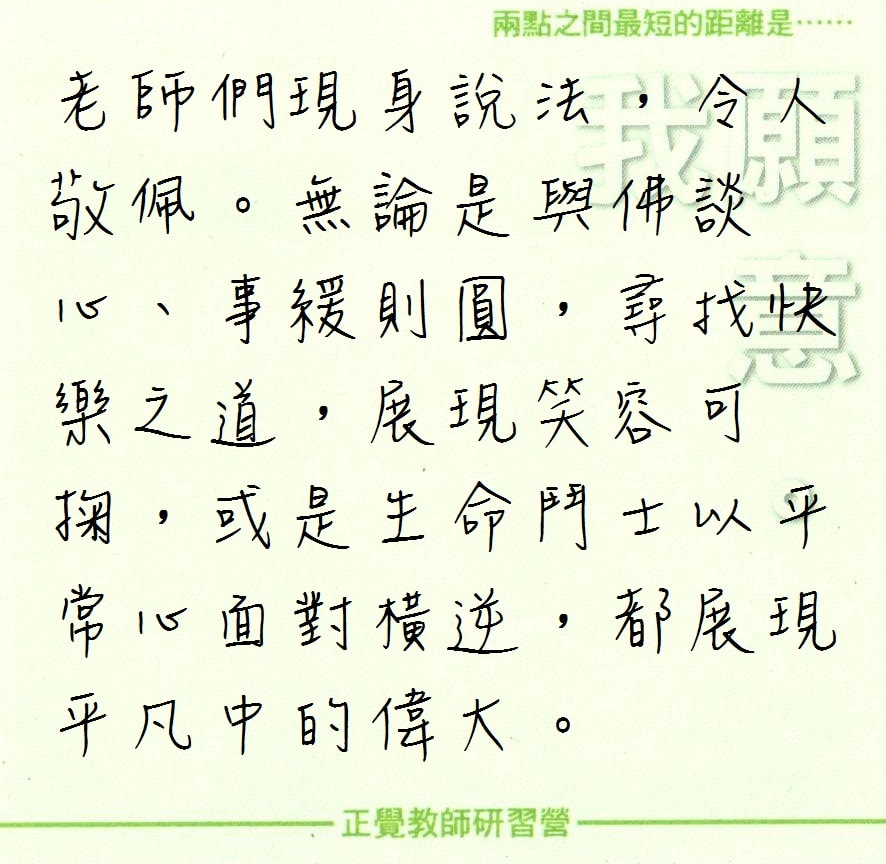 兩點之間最短的距離是……
我願意
老師們現身說法，令人
敬佩。無論是與佛談
心、事緩則圓，尋找快
樂之道，展現笑容可
掬，或是生命鬥士以平
常心面對橫逆，都展現
平凡中的偉大。
正覺教師研習營